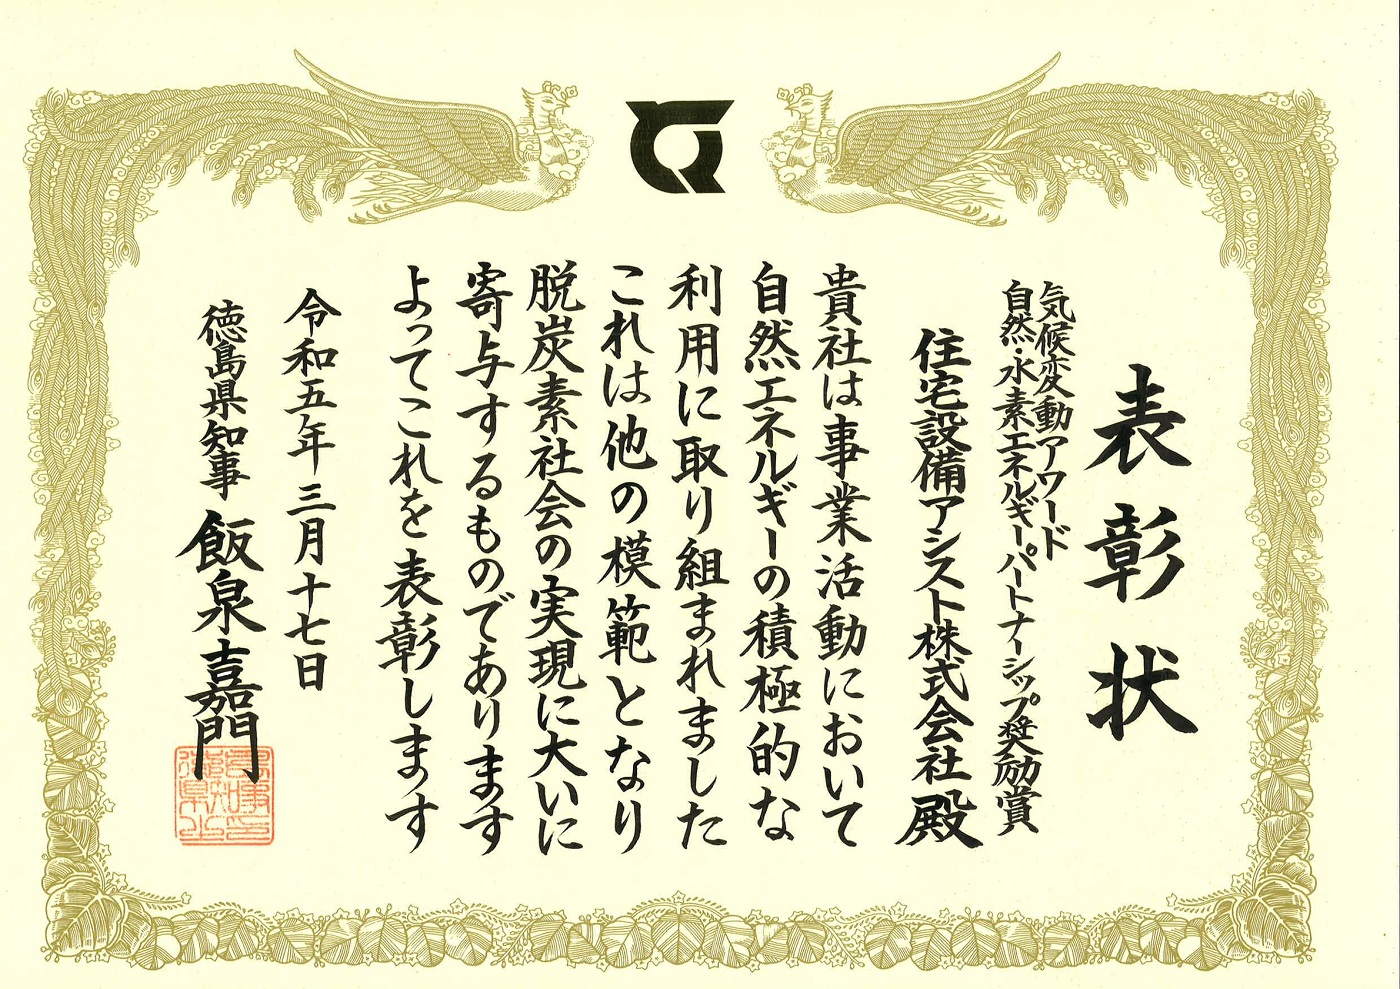 表彰状
気候変動アワード
自然・水素エネルギーパートナーシップ奨励賞
住宅設備アシスト株式会社 殿
貴社は事業活動において
自然エネルギーの積極的な
利用に取り組まれました
これは他の模範となり
脱炭素社会の実現に大いに
寄与するものであります
よってこれを表彰します
令和五年三月十七日
徳島県知事 飯泉嘉門